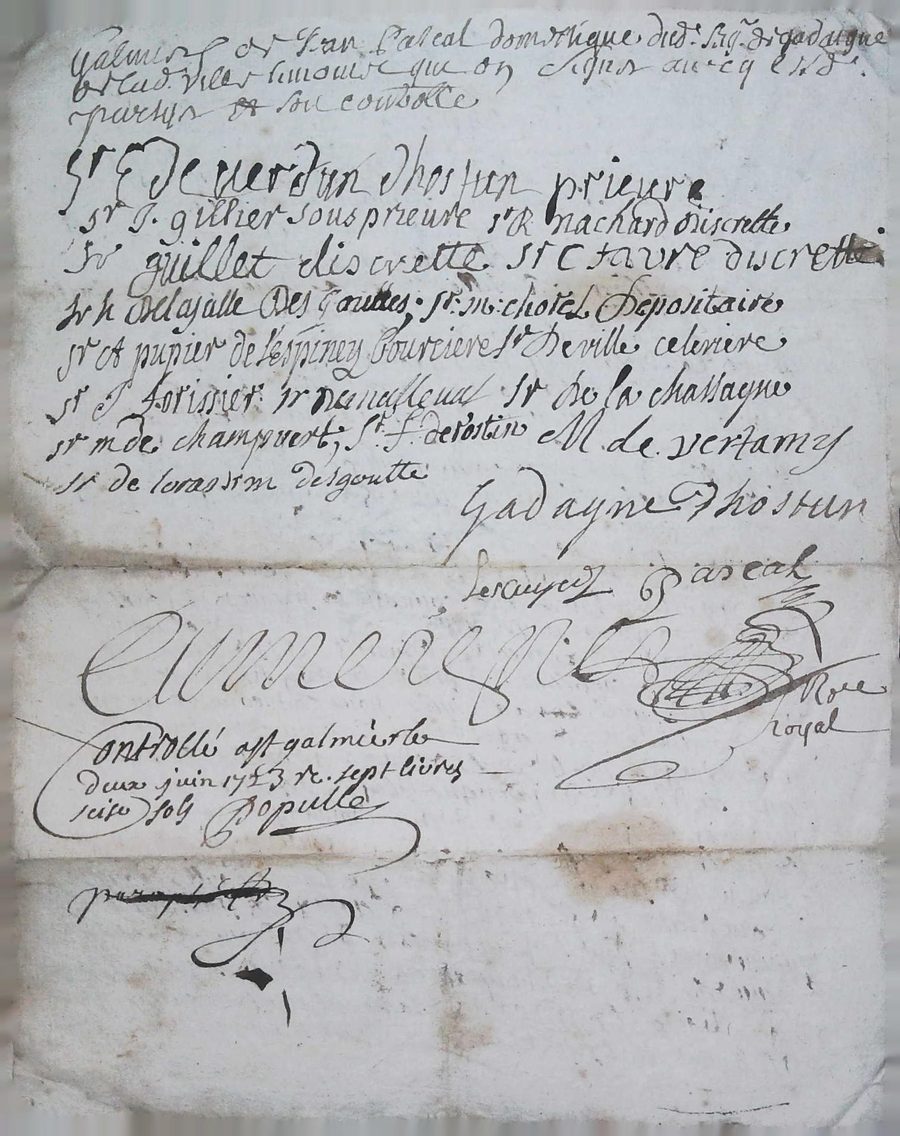 galmier et Jean Pascal domestique dud. sig. de gadaigne
de lad. ville temoins qui ont signés avecq lesd.
partyes et son controlle
Sr E de verdun dhostun prieure
sr J. gillier sousprieure sr R nachard discrette
Sr guillet discrette sr C favre discrette
Sr h Delasalle Des Gouttes; sr. m: chorel Depositaire
sr A pupier de l'espiney boursiere sr De ville celeriere
sr J forissier sr sr De la chassagne
sr m de champvert; Sr. f. de rostin M de vertamy
sr de loras sr m desgoutte
Gadagne Dhostun
Lescuyer Pascal
Nore
royal
Controllé a st galmier le
deux juin 1723 re. sept livres
seise sols Populle